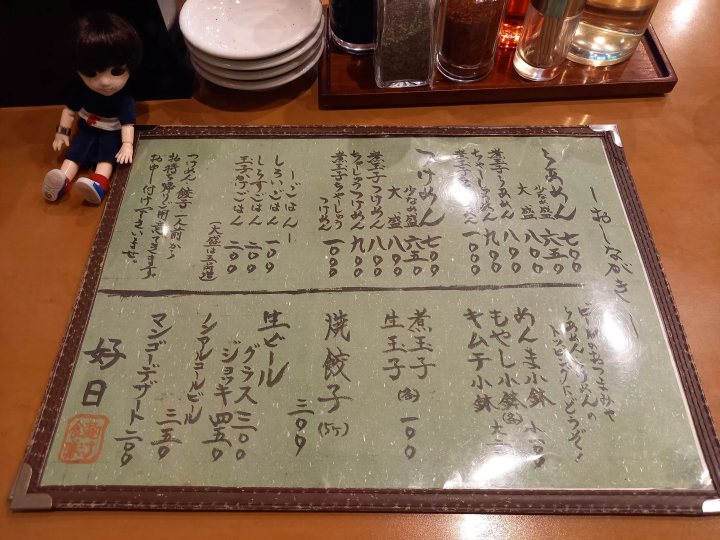 ーおしながきー
らあめん 七〇〇
少なめ盛 六五〇
大盛 八〇〇
煮玉子らあめん 八〇〇
九〇〇
煮玉子 一〇〇〇
つけめん 七〇〇
少なめ盛 六五〇
大盛 八〇〇
煮玉子つけめん 八〇〇
ちゃーしゅうつけめん 九〇〇
煮玉子ちゃーしゅうつけめん 一〇〇〇
ーごはんー
しろいごはん 一〇〇
しらすごはん 二〇〇
玉子かけごはん 二〇〇
(大盛は五十円増)
つけめん 餃子二人前から
お持ち帰りご用意できます
お申し付け下さいませ。
ビールのおつまみや
らあめん、つけめんの
トッピングにどうぞ!
めんま小鉢
もやし小鉢(各)
キムチ小鉢
煮玉子
生玉子(各) 一〇〇
焼餃子(5ケ) 三〇〇
生ビール グラス 三〇〇
ジョッキ 四五〇
ノンアルコールビール 三五〇
マンゴーデザート 二〇〇
好日